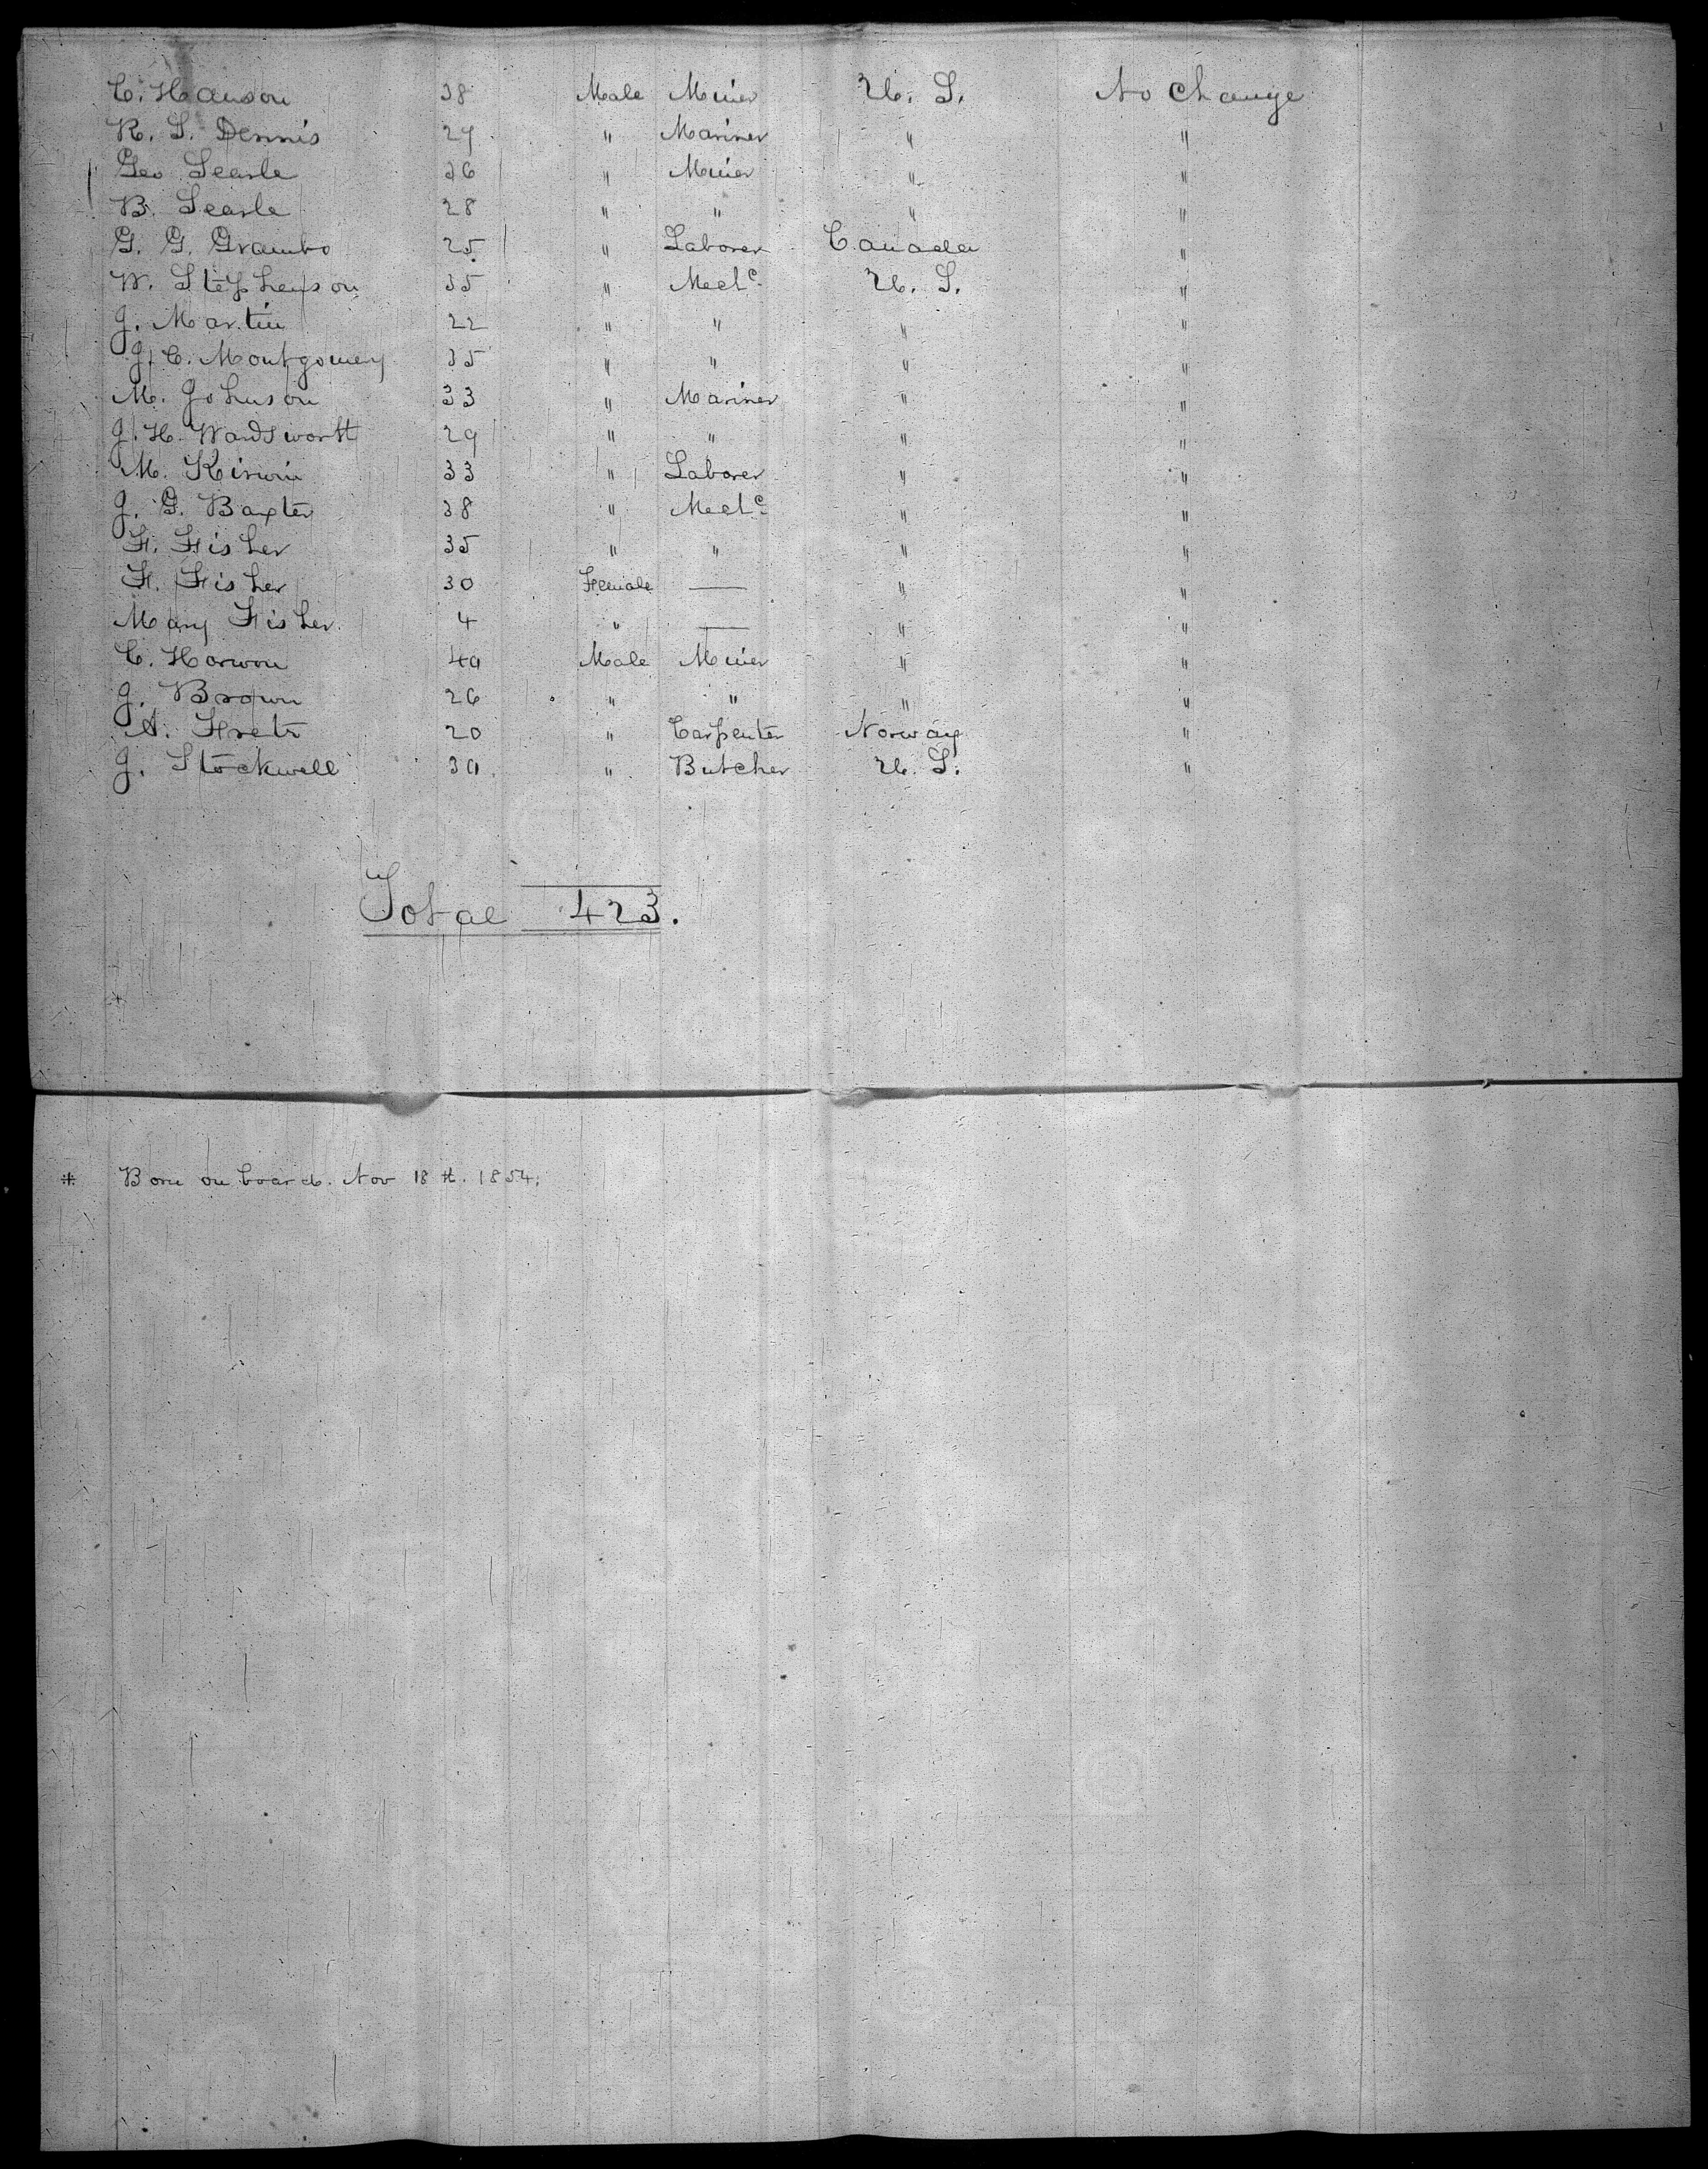 C. Hanson 38 Male Miner U. S. No Change
R. S. Dennis 29 " Mariner " "
Geo Searle 36 " Miner " "
B. Searle 28 " " " "
G. G. Grambo 25 " Laborer Canada "
W. Stephenson 35 " Mech<sup>c</sup> U. S. "
J. Martin 22 " " " "
J. C. Montgomery 35 " " " "
M. Johnson 33 " Mariner " "
J. H. Wardsworth 29 " " " "
M. Kirwin 33 " Laborer " "
J. G. Baxter 38 " Mech<sup>c</sup> " "
F. Fisher 35 " " " "
F. Fisher 30 Female — " "
Mary Fisher 4 " — " "
C. Horwon 40 Male Miner " "
J. Brown 26 " " " "
A. 20 " Carpenter Norway "
J. Stockwell 30 " Butcher U. S. "
Total 423.
* Born on board. Nov 18th. 1854.